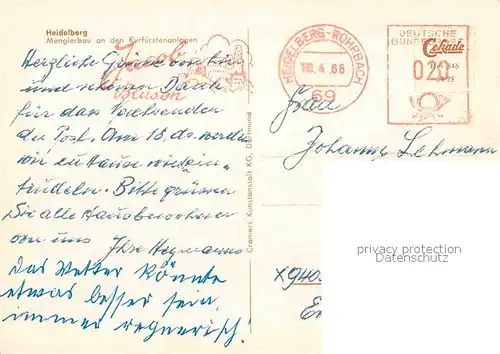 Heidelberg
Menglerbau an den Kurfürstenanlagen
Herzliche Grüsse von hier
und schönen Dank
für das Nachsenden
der Post. Am 18. ds. werden
wir zuhause wieder ein-
trudeln. Bitte grüssen
Sie alle Hausbewohner
von uns
Ihre Hegmanns
Das Wetter könnte
etwas besser sein,
immer regnerisch!
Jacobi
Cramers Kunstanstalt KG, Dortmund
HEIDELBERG-ROHRBACH
18.4.66
69
DEUTSCHE
BUNDESPOST
Cekade
020
Johanna Lehmann
privacy protection
Datenschutz